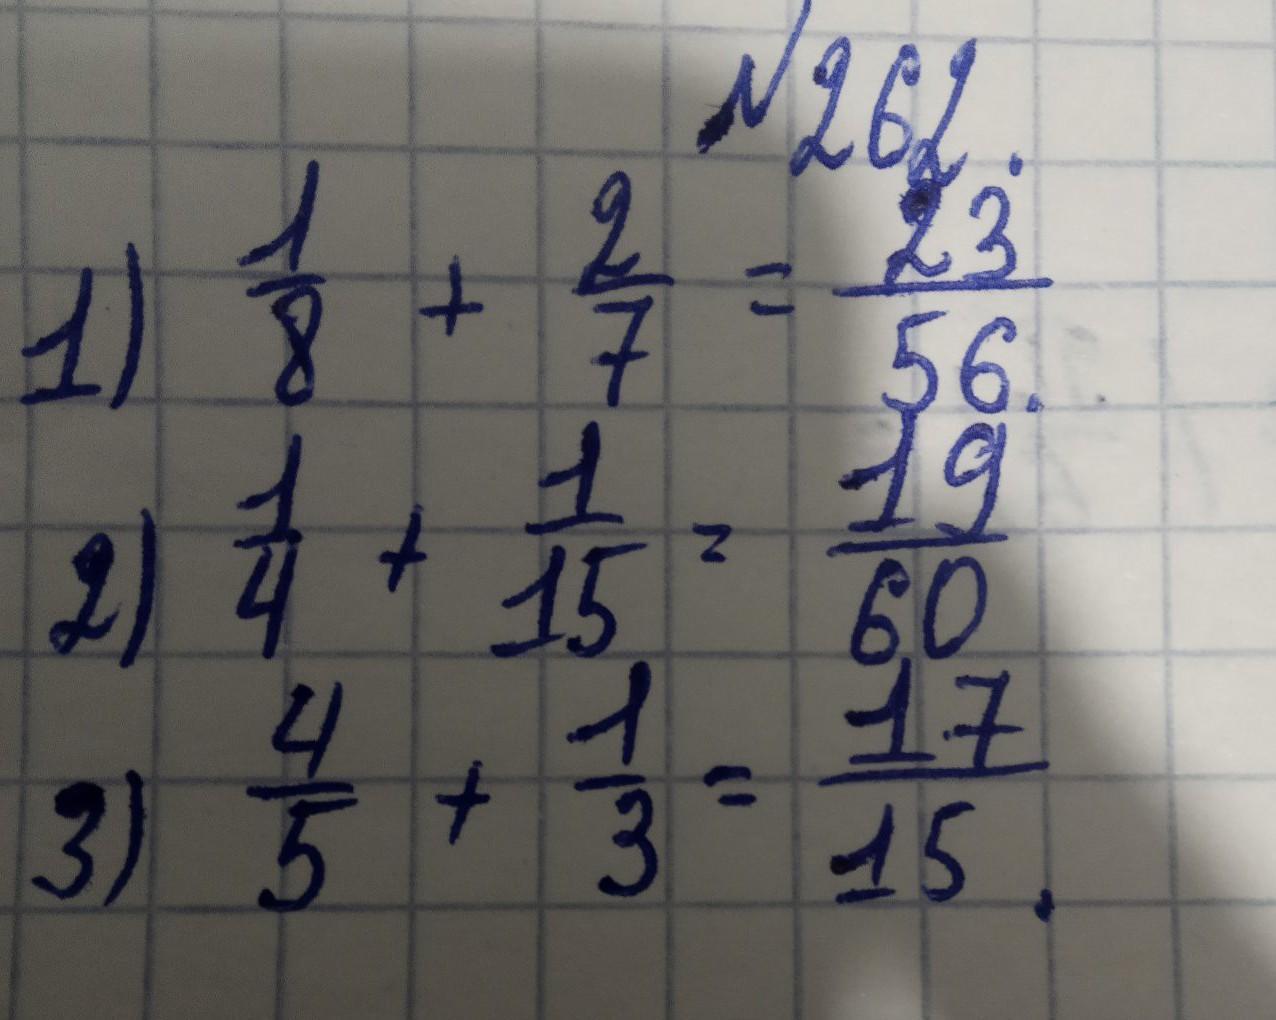 №262.
1) 1/8 + 2/7 = 23/56.
2) 1/4 + 1/15 = 19/60
3) 4/5 + 1/3 = 17/15.